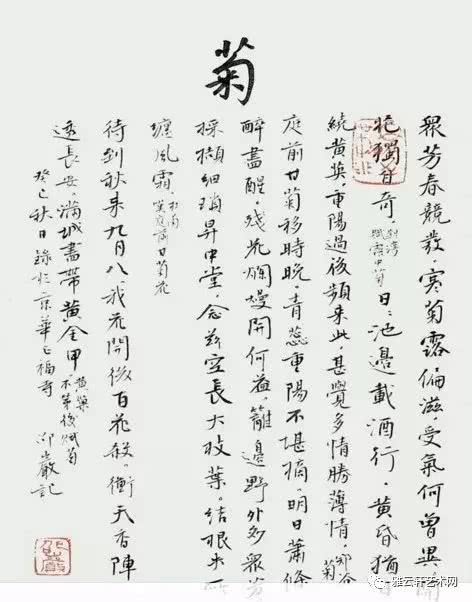 菊
眾芳春競發，寒菊露偏滋，受氣何曾異，開
花獨自奇。劉灣 賦露中菊 日日池邊載酒行，黃昏猶自
繞黃英，重陽過後頻來此，甚覺多情勝薄情。鄭谷 菊
庭前甘菊移時晚，青蕊重陽不堪摘，明日蕭條
醉盡醒，殘花爛熳開何益，籬邊野外多眾芳
採擷細瑣昇中堂，念茲空長大枝葉。結根失所
纏風霜 杜甫 嘆庭前甘菊花
待到秋來九月八，我花開後百花殺，衝天香陣
透長安，滿城盡帶黃金甲 黃巢 不第後賦菊
癸巳秋日錄於京華 福寺 嚴記
雅云轩艺术网